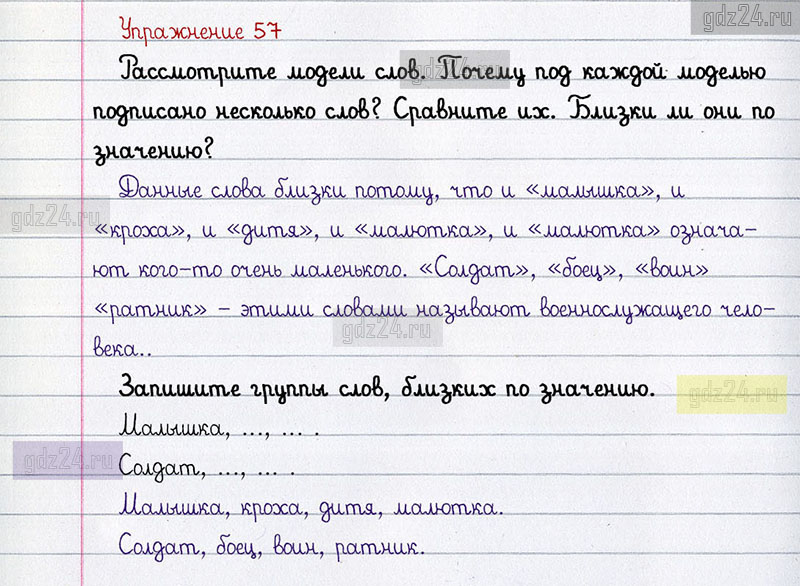 gdz24.ru
Упражнение 57
Рассмотрите модели слов. Почему под каждой моделью
gdz24.ru
подписано несколько слов? Сравните их. Близки ли они по
значению?
Данные слова близки потому, что и «малышка», и
gdz24.ru
«кроха», и «дитя», и «малютка», и «малютка» означа-
ют кого-то очень маленького. «Солдат», «боец», «воин»
«ратник» – этими словами называют военнослужащего чело-
gdz24.ru
века..
Запишите группы слов, близких по значению.
gdz24.ru
Малышка, ..., ... .
gdz24.ru
Солдат, ..., ... .
Малышка, кроха, дитя, малютка.
Солдат, боец, воин, ратник.